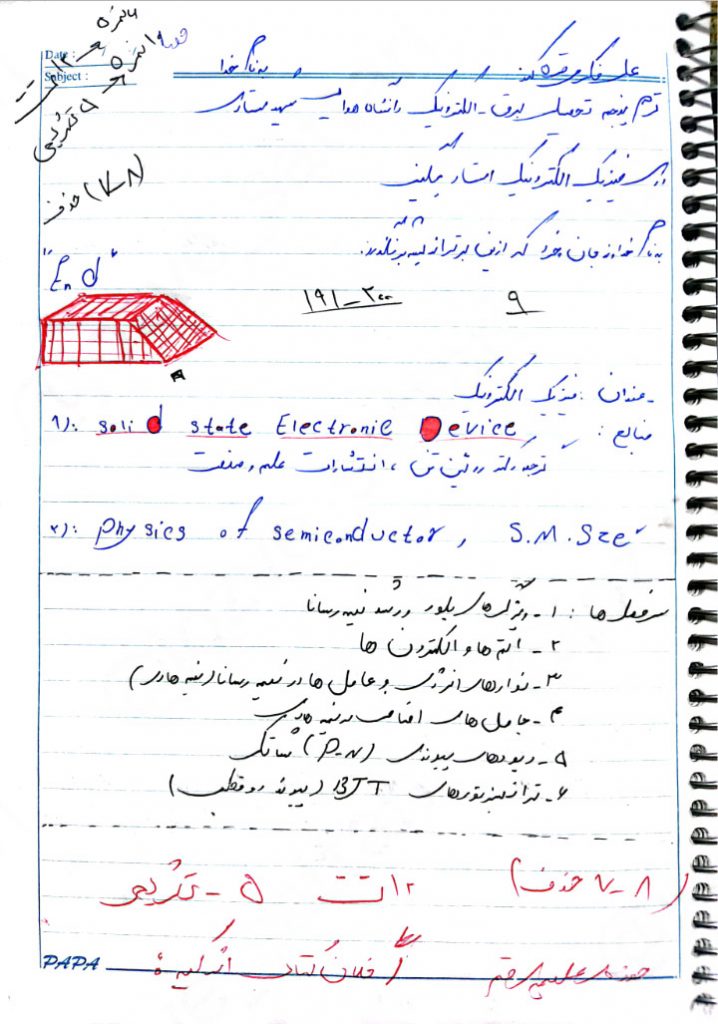 Date :
Subject :
به نام خدا
ترم پنجم تحصیلی برق - الکترونیک دانشگاه هوایی شهید ستاری
درس فیزیک الکترونیک استاد
به نام خداوند جان و خرد که از این برتر اندیشه بر نگذرد.
(۷-۸) حذف
"End"
۱۹۱-۲۰۰
۹
عنوان : فیزیک الکترونیک
منابع : ۱): solid state Electronic Device
ترجمه دکتر روئین تن ، انتشارات علم و صنعت
۲): physics of semiconductor, S.M.Sze
سرفصل ها : ۱- ویژگی های بلور و رشد نیمه رسانا
۲- اتم ها و الکترون ها
۳- نوارهای انرژی و حامل ها در نیمه رسانا (نیمه هادی)
۴- حامل های اضافی در نیمه هادی
۵- دیودهای پیوندی (P-N) شاتکی
۶- ترانزیستورهای BJT (پیوند دو قطبی)
(۷-۸ حذف) ۱۲ تست ۵- تشریحی
PAPA